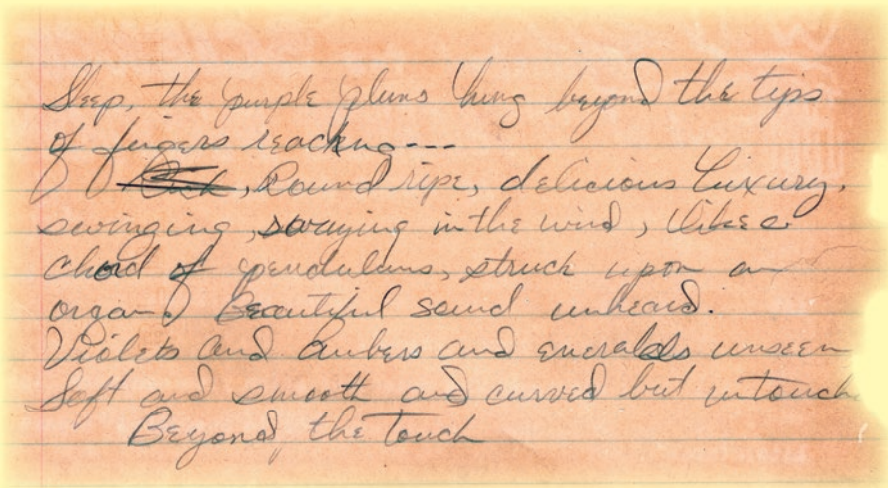 Sleep, the purple plums hung beyond the tips
of fingers reaching---
, Round ripe, delicious Luxury,
swinging, swaying in the wind, like a
chord of pendulums, struck upon an
organ. Beautiful sound unheard.
Violets and Ambers and emeralds unseen
Soft and smooth and curved but untouch
Beyond the Touch